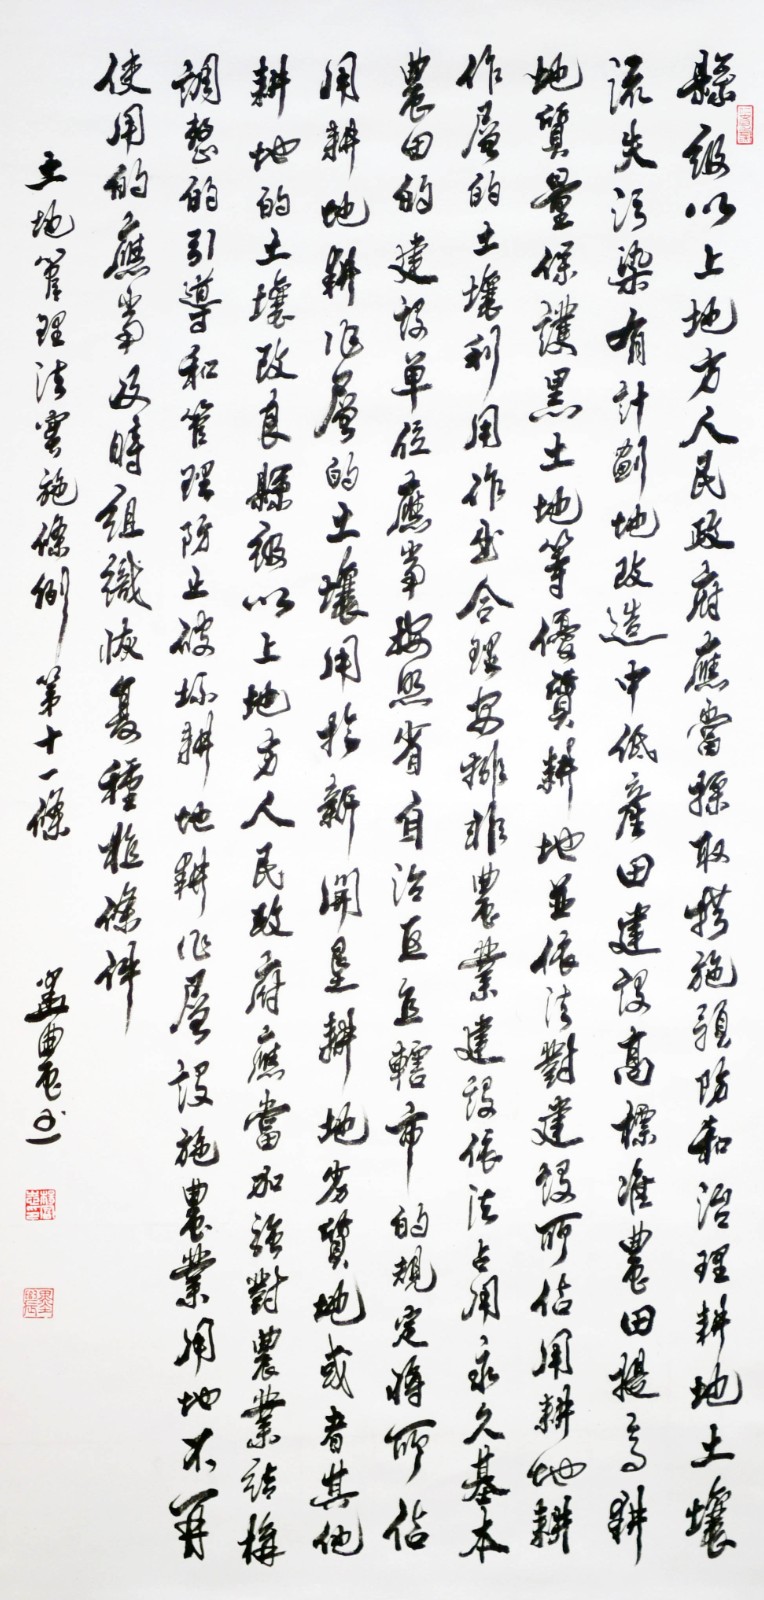 縣級以上地方人民政府應當採取措施預防和治理耕地土壤
流失污染有計劃地改造中低產田建設高標准農田提高耕
地質量保護黑土地等優質耕地並依法對建設所佔用耕地耕
作層的土壤利用作出合理安排非農業建設依法占用永久基本
農田的建設單位應當按照省自治区直轄市的規定將所佔
用耕地耕作層的土壤用於新開垦耕地劣質地或者其他
耕地的土壤改良縣級以上地方人民政府應當加强對農業結構
調整的引導和管理防止破坏耕地耕作層設施農業用地不再
使用的應當及時組織恢复種植條件
土地管理法實施條例 第十一條
農书